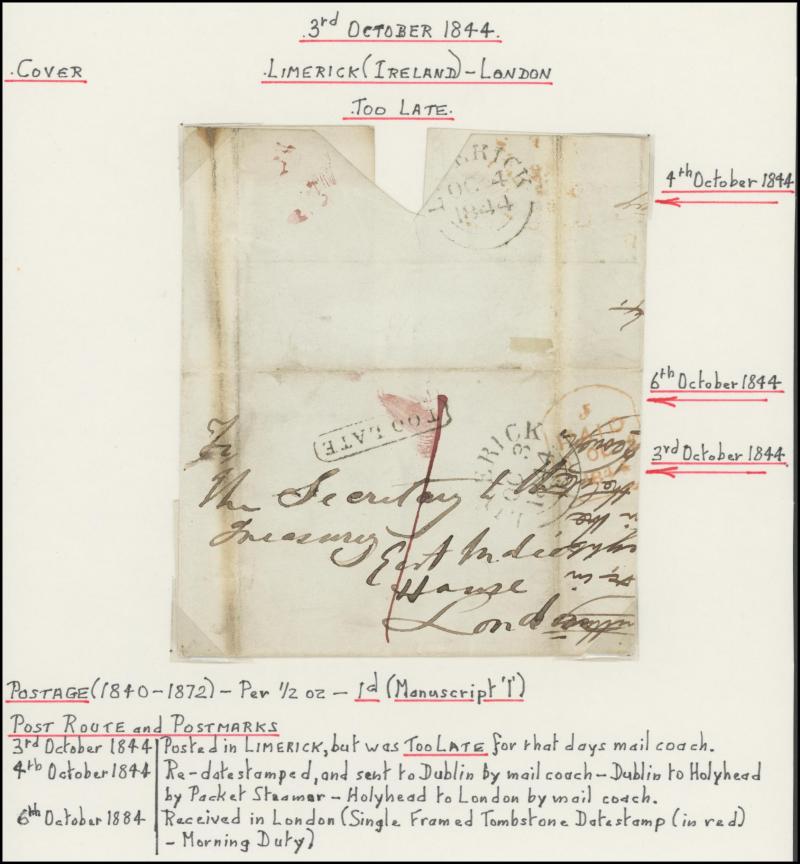 3rd OCTOBER 1844.
.COVER
.LIMERICK (IRELAND) - LONDON
.TOO LATE.
4th October 1844
ERICK
OC 4
1844
6th October 1844
3rd October 1844
TOO LATE
PAID
ERICK
OC 3
To
The Secretary to the
Treasury
East India
House
London
POSTAGE (1840-1872) - Per 1/2 oz - 1d (Manuscript '1')
POST ROUTE and POSTMARKS
3rd October 1844 Posted in LIMERICK, but was TOO LATE for that days mail coach.
4th October 1844 Re-datestamped, and sent to Dublin by mail coach - Dublin to Holyhead
by Packet Steamer - Holyhead to London by mail coach.
6th October 1884 Received in London (Single Framed Tombstone Datestamp (in red)
- Morning Duty)